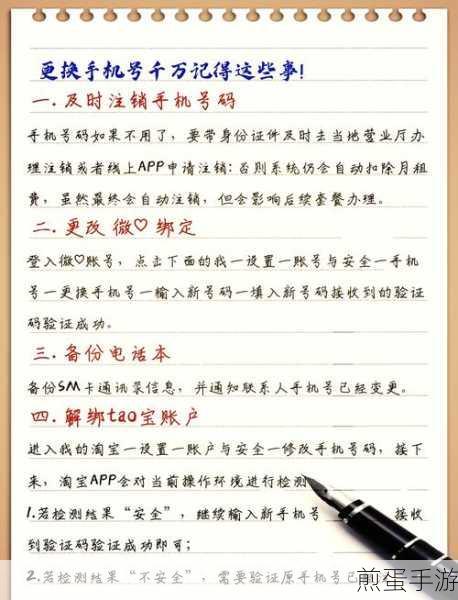 更换手机号千万记得这些事!
一.及时注销手机号码
手机号码如果不用了,要带身份证件及时去当地营业厅办
理注销或者线上APP申请注销:否则系统仍会自动扣除月租
费,虽然最终会自动注销,但会影响后续套餐办理。
二.更改 微♡ 绑定
登入微♡账号,点击下面的我一设置一账号与安全一手机
号一更换手机号一输入新号码一填入新号码接收到的验证
码验证成功。
三.备份电话本
备份SM卡通讯录信息,并通知联系人手机号已经变更。
四.解绑tao宝账户
进入我的淘宝一设置一账户与安全一修改手机号码,接下
来,淘宝APP会对当前操作环境进行检测
1.若检测结果“安全”,继续输入新手机号 接收
到验证码验证成功即可;
2.若检测结果“不安全”,需要验证原手机号已
煎蛋手游